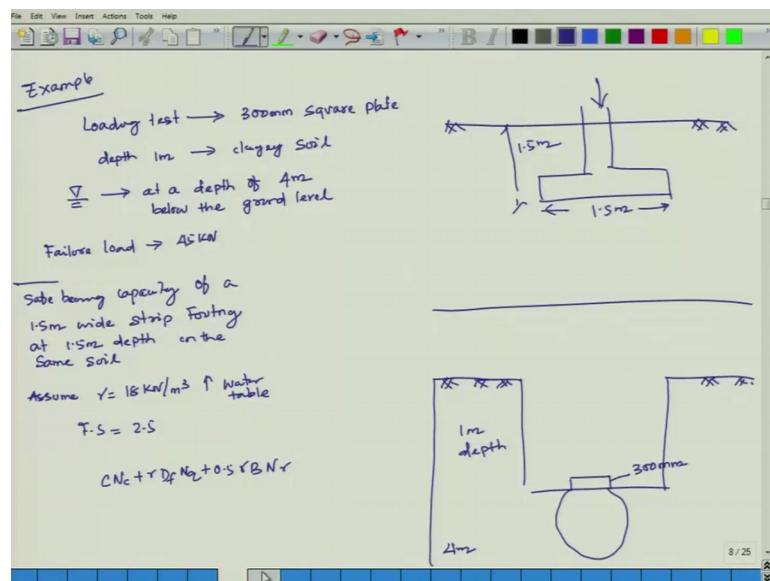 File Edit View Insert Actions Tools Help
Example
Loading test → 300mm square plate
depth 1m → clayey soil
∇ → at a depth of 4m
below the ground level
Failure load → 45KN
Safe bearing capacity of a
1.5m wide strip Footing
at 1.5m depth on the
same soil
Assume γ = 18 KN/m³ ↑ water
table
F.S = 2.5
CNc + γ Df Nq + 0.5 γ B Nγ
1.5m
1.5m
1m
depth
300mm
4m
8 / 25